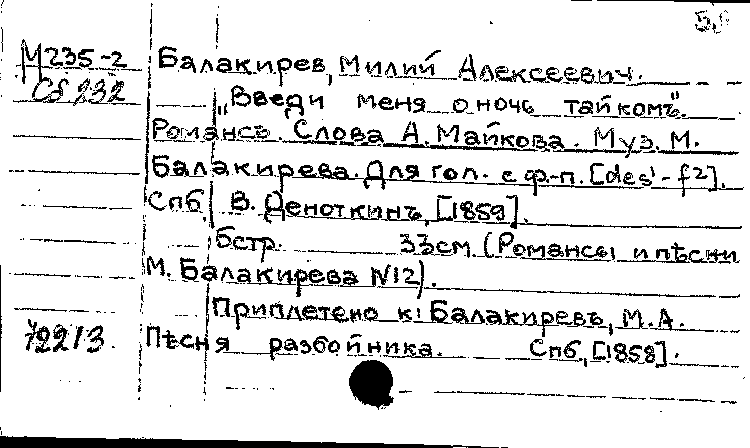 М235-2 Балакирев, Милий Алексеевич.
Сб 232 „Введи меня о ночь тайкомъ".
Романсъ. Слова А. Майкова. Муз. М.
Балакирева. Для гол. с ф-п. [des¹-f2].
Спб, В. Деноткинъ, [1859].
6стр. 33см. (Романсы и пѣсни
М. Балакирева N12).
Приплетено к: Балакиревъ, М.А.
Пѣсня разбойника. Спб, [1858].